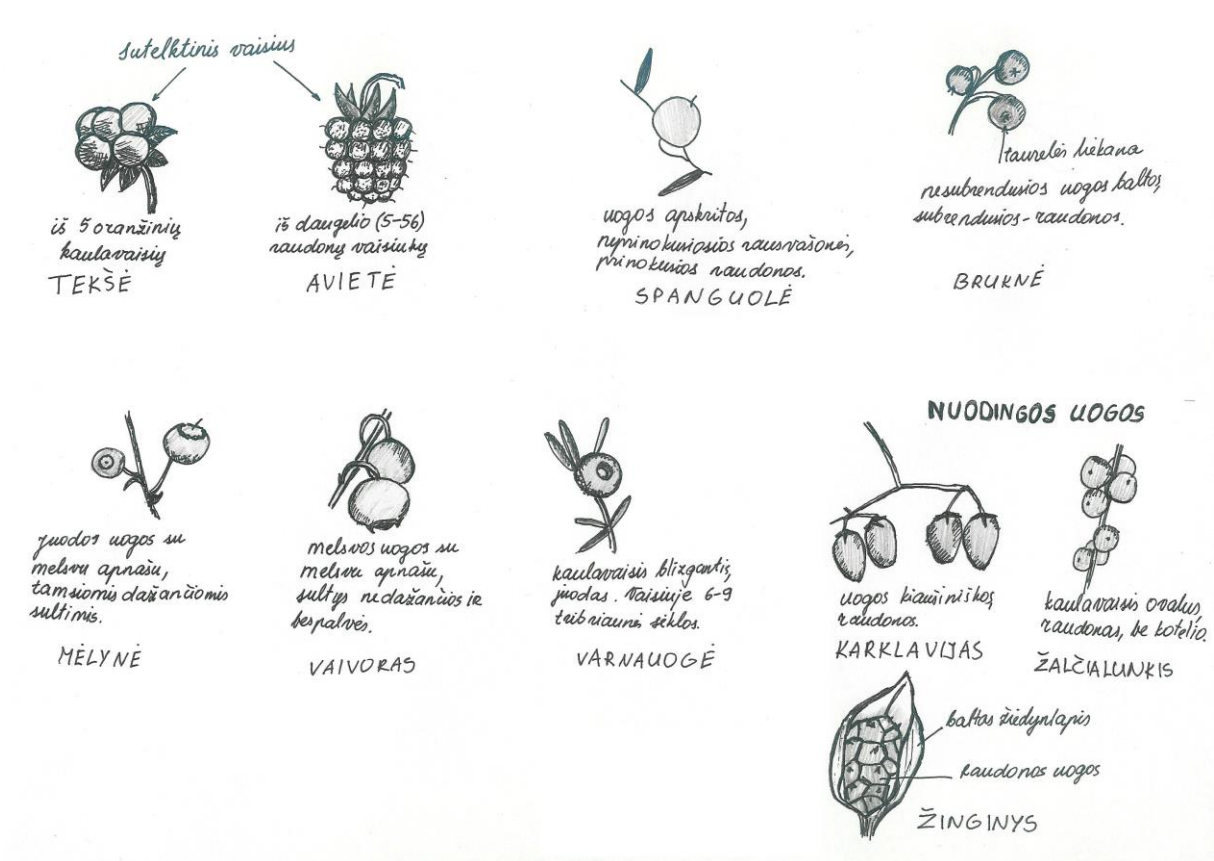 sutelktinis vaisius
iš 5 oranžinių
kaulavaisių
TEKŠĖ
iš daugelio (5-56)
raudonų vaisiukų
AVIETĖ
uogos apskritos,
neprinokusiosios rausvašonės,
prinokusios raudonos.
SPANGUOLĖ
taurelės liekana
nesubrendusios uogos baltos,
subrendusios-raudonos.
BRUKNĖ
juodos uogos su
melsvu apnašu,
tamsiomis dažančiomis
sultimis.
MĖLYNĖ
melsvos uogos su
melsvu apnašu,
sultys nedažančios ir
bespalvės.
VAIVORAS
kaulavaisis blizgantis,
juodas. Vaisiuje 6-9
tribriaunės sėklos.
VARNAUOGĖ
NUODINGOS UOGOS
uogos kiaušiniškos,
raudonos.
KARKLAVIJAS
kaulavaisis ovalus,
raudonas, be kotelio.
ŽALČIALUNKIS
baltas žiedynlapis
raudonos uogos
ŽINGINYS